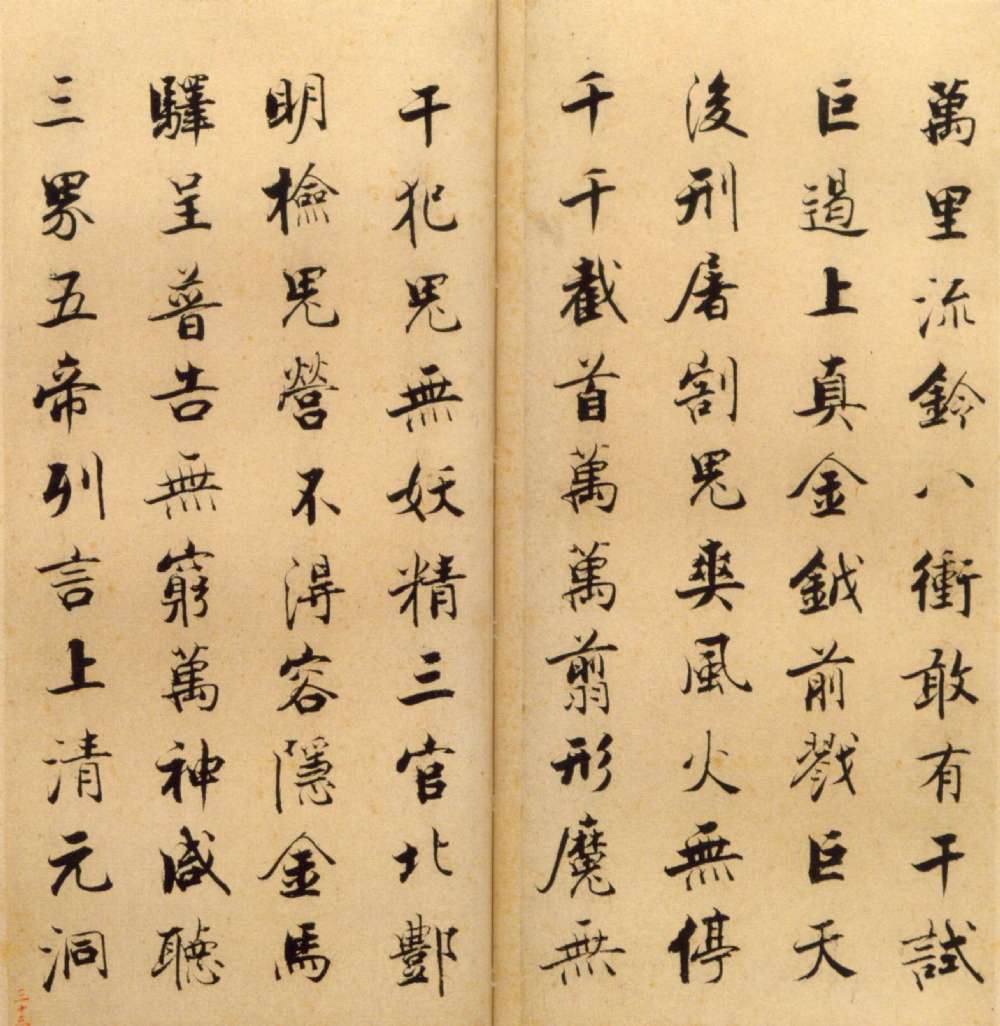 萬里流鈴八衝敢有干試
巨遏上真金鉞前戮巨天
後刑屠割鬼爽風火無停
千千截首萬萬翦形魔無
干犯鬼無妖精三官北酆
明檢鬼營不得容隱金馬
驛呈普告無窮萬神咸聽
三界五帝列言上清元洞
三十三